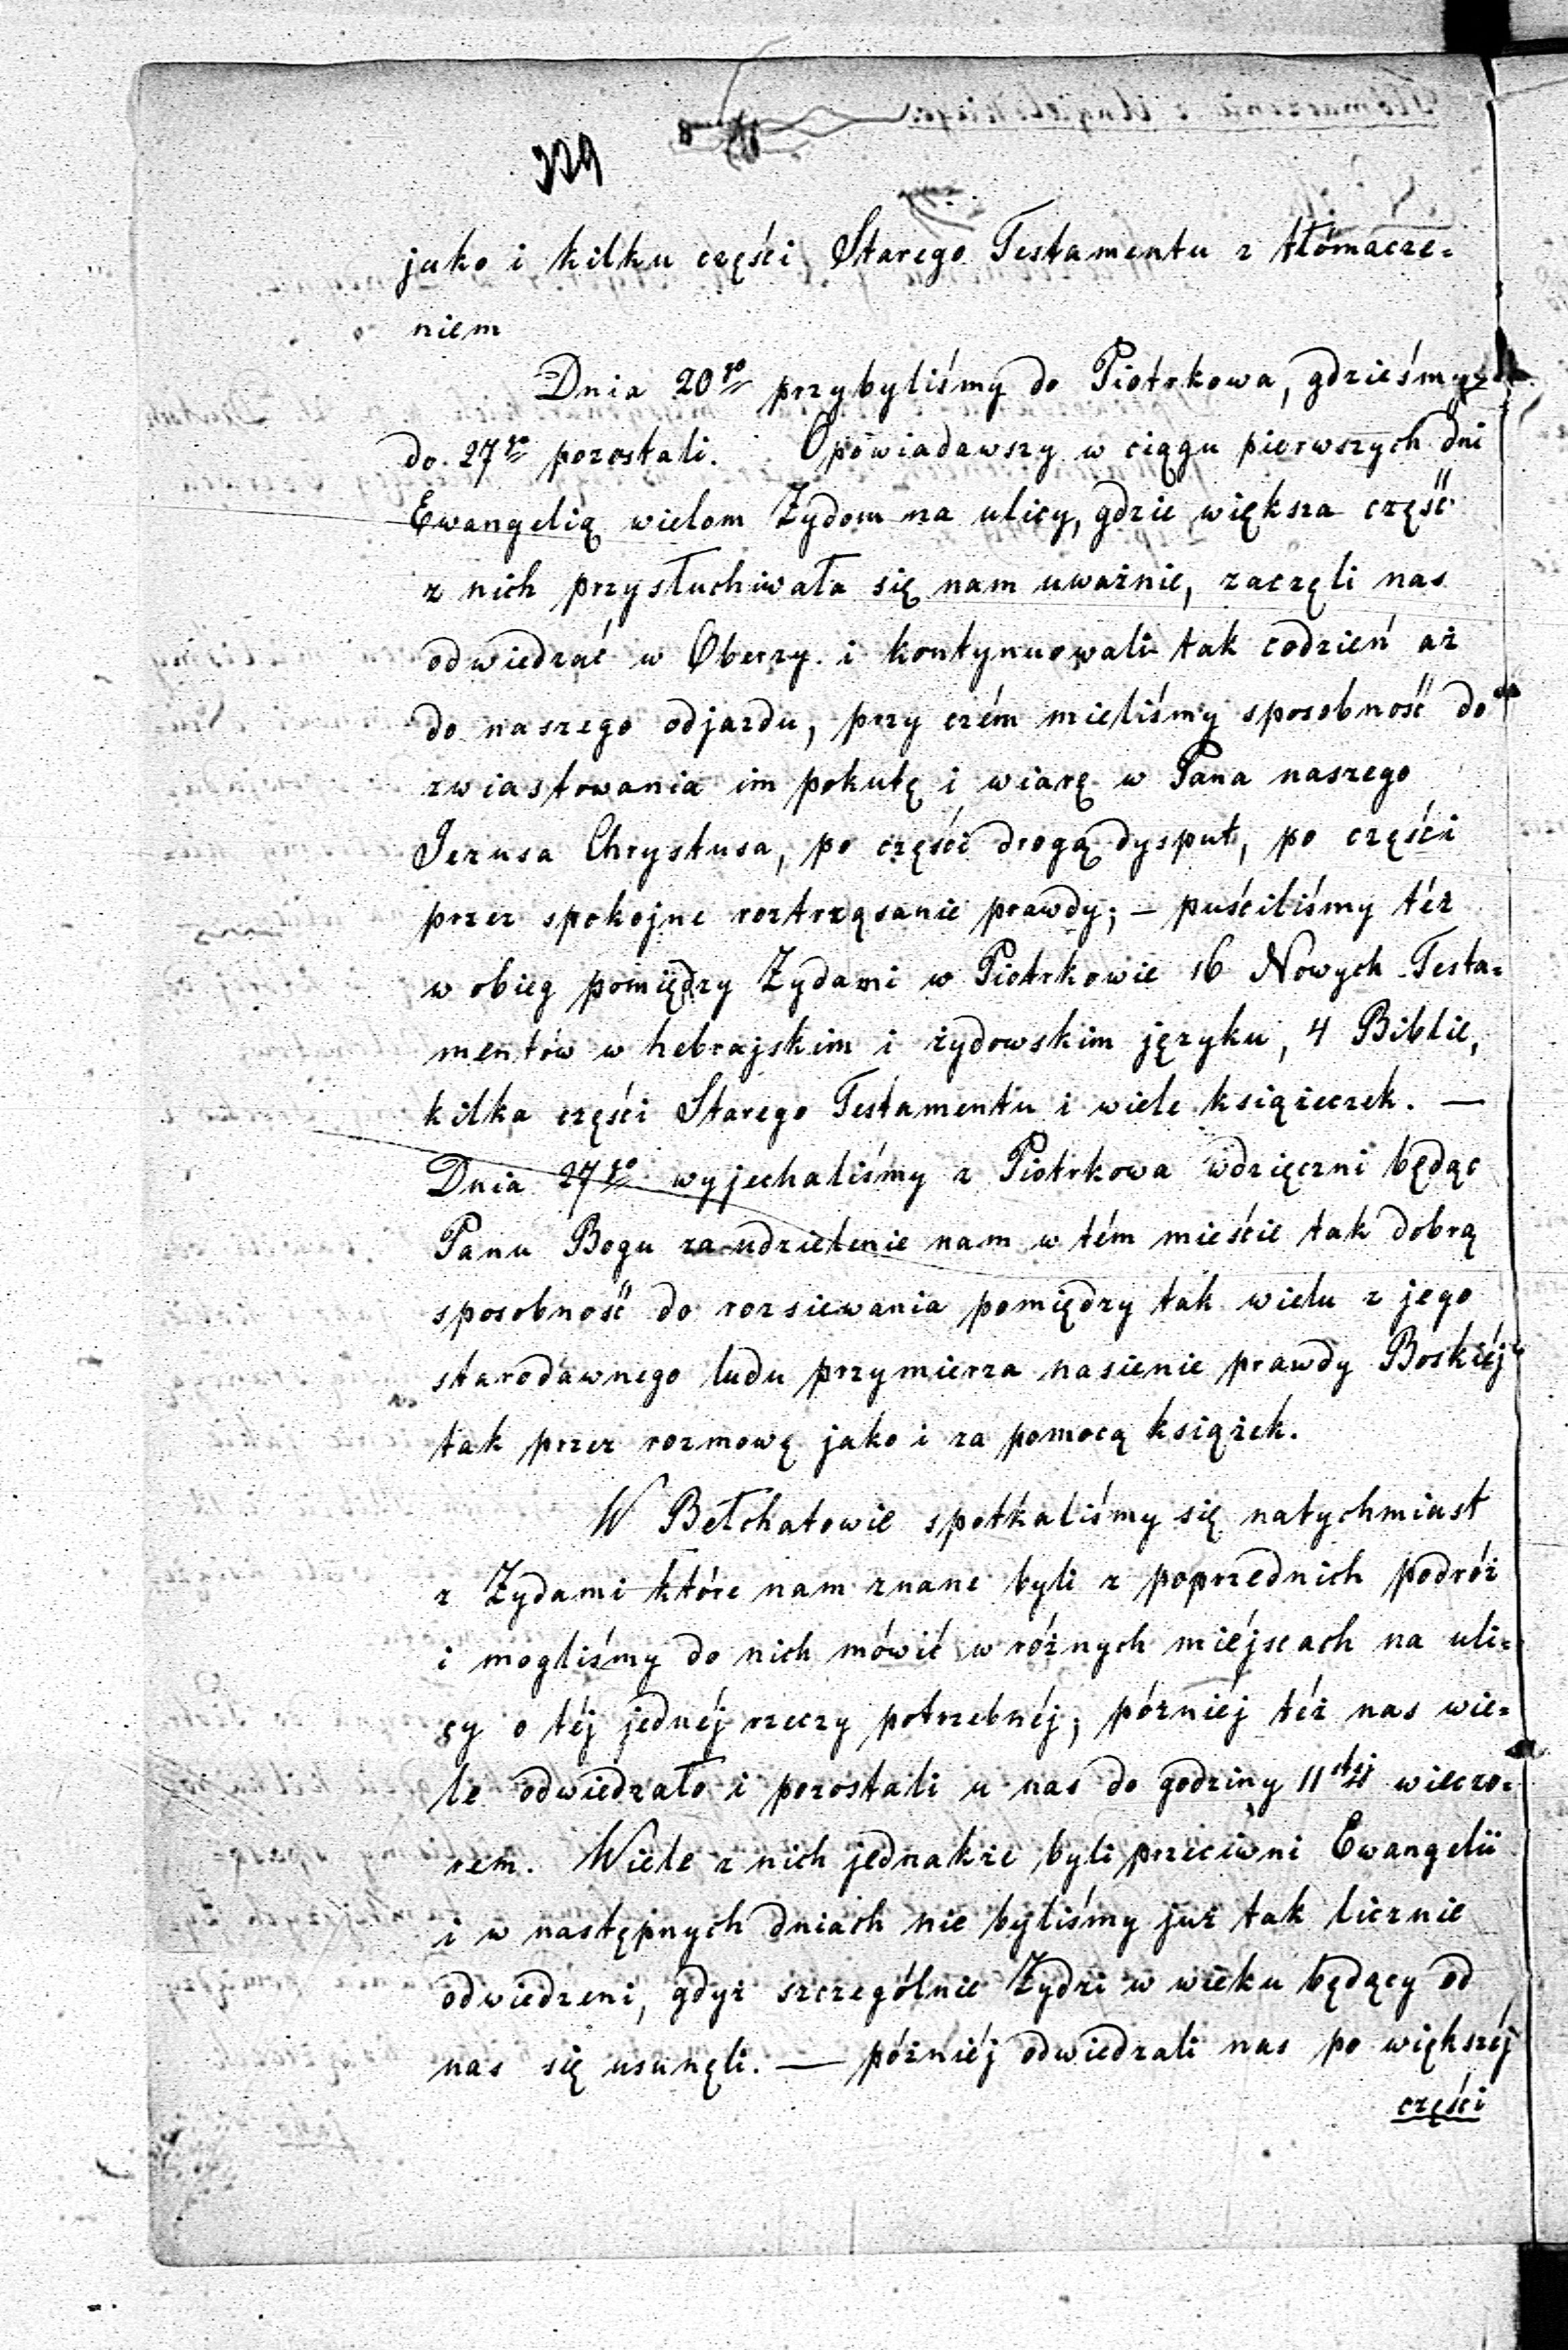 329
jako i kilku części Starego Testamentu z tłómacze=
niem
Dnia 20go przybyliśmy do Piotrkowa, gdzieśmy
do 27go pozostali. Opowiadawszy w ciągu pierwszych dni
Ewangelią wielom Żydom na ulicy, gdzie większa część
z nich przysłuchiwała się nam uważnie, zaczęli nas
odwiedzać w Oberzy i kontynuowali tak codzień aż
do naszego odjazdu, przy czém mieliśmy sposobność do
zwiastowania im pokutę i wiarę w Pana naszego
Jezusa Chrystusa, po części drogą dysput, po części
przez spokojne roztrząsanie prawdy; — puściliśmy téż
w obieg pomiędzy Żydami w Piotrkowie 16 Nowych Testa=
mentów w hebrajskim i żydowskim języku, 4 Biblie,
kilka części Starego Testamentu i wiele książeczek. —
Dnia 27go wyjechaliśmy z Piotrkowa wdzięczni będąc
Panu Bogu za udzielenie nam w tém mieście tak dobrą
sposobność do rozsiewania pomiędzy tak wielu z jego
starodawnego ludu przymierza nasienie prawdy Boskiéj
tak przez rozmowę jako i za pomocą książek.
W Bełchatowie spotkaliśmy się natychmiast
z Żydami które nam znane byli z poprzednich podróż
i mogliśmy do nich mówić w różnych miéjscach na uli=
cy o téj jednéj rzeczy potrzebnéj; późniéj téż nas wie=
le odwiedzało i pozostali u nas do godziny 11stéj wieczo=
rem. Wiele z nich jednakże byli przeciwni Ewangelii
i w następnych dniach nie byliśmy już tak licznie
odwiedzeni, gdyż szczególnie Żydzi w wieku będący od
nas się usunęli. — późniéj odwiedzali nas po większéj
części